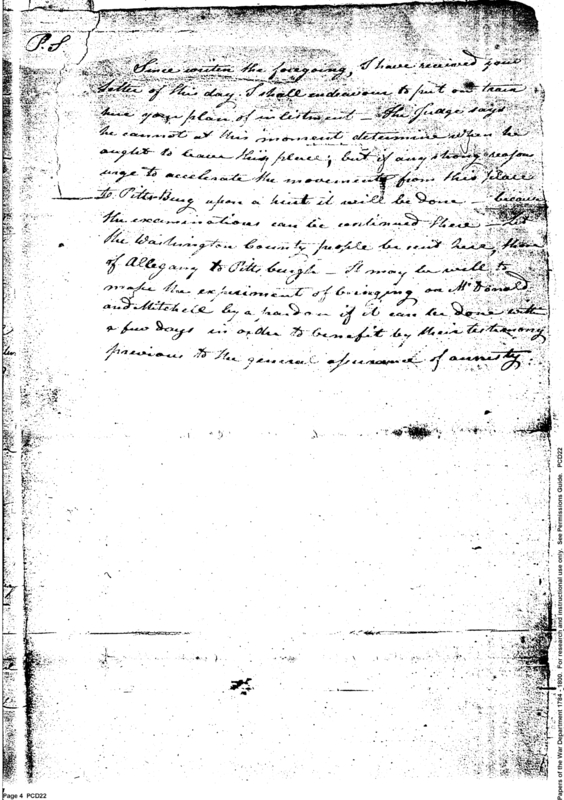 P.S.
Since writen the foregoing, I have received your
Letter of this day. I shall endeavour to put on train
here your plan of inlistment — The Judge says
he cannot at this moment determine when he
ought to leave this place; but if any strong reasons
urge to accelerate the movement from this place
to Pittsburg upon a hint it will be done — because
the examinations can be continued there — Let
the Washington County people be sent here, those
of Allegany to Pittsburgh — It may be well to
make the experiment of bringing on McDonald
and Mitchell by a pardon if it can be done with
a few days in order to benefit by their testimony
previous to the general assurance of amnesty
Page 4 PCD22
Papers of the War Department 1784 - 1800. For research and instructional use only. See Permissions Guide. PCD22